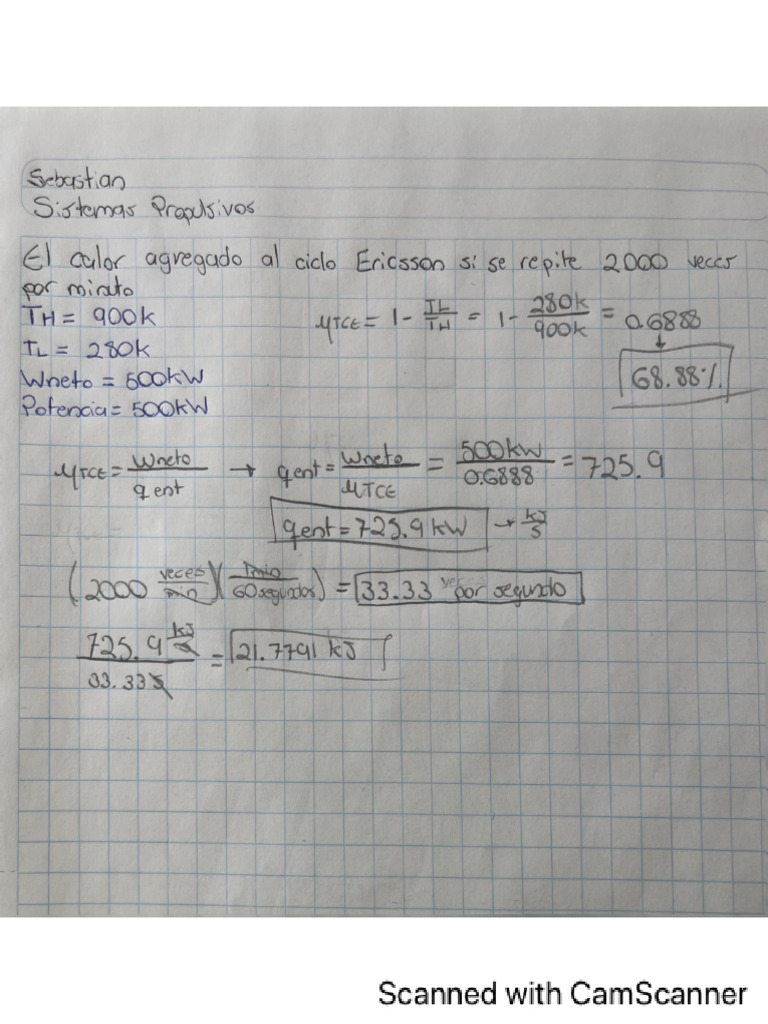 Sebastian
Sistemas Propulsivos
El calor agregado al ciclo Ericsson si se repite 2000 veces
por minuto
TH = 900k
TL = 280k
Wneto = 500kW
Potencia = 500kW
μTCE = 1 - TL/TH = 1 - 280k/900k = 0.6888
↓
68.88%
μTCE = Wneto/qent → qent = Wneto/μTCE = 500kw/0.6888 = 725.9
qent = 725.9 kW → kJ/s
(2000 veces/min)(1min/60segundos) = 33.33 veces por segundo
725.9 kJ/s / 33.33 s = 21.7791 kJ
Scanned with CamScanner